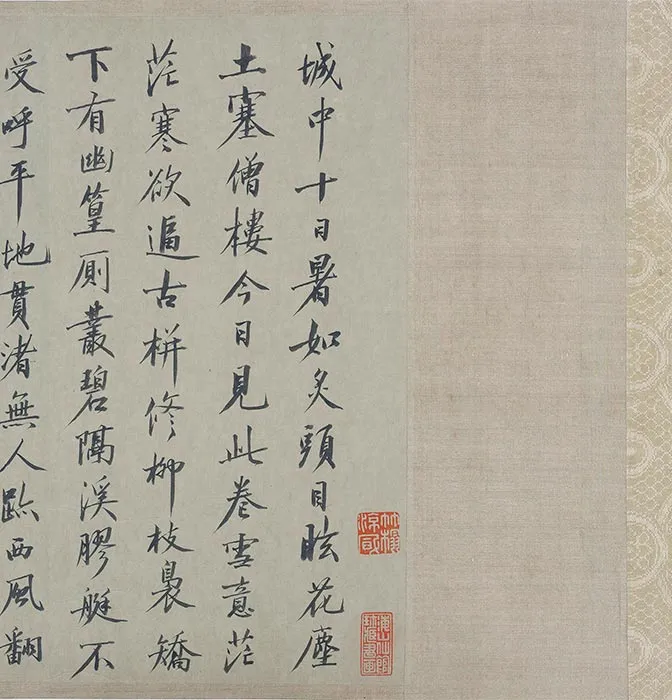 城中十日暑如炙頭目眩花塵
土塞僧樓今日見此卷雪意茫
茫寒欲逼古栟修柳枝裊矯
下有幽篁厠叢碧隔溪膠艇不
受呼平地貫渚無人跡西風翻